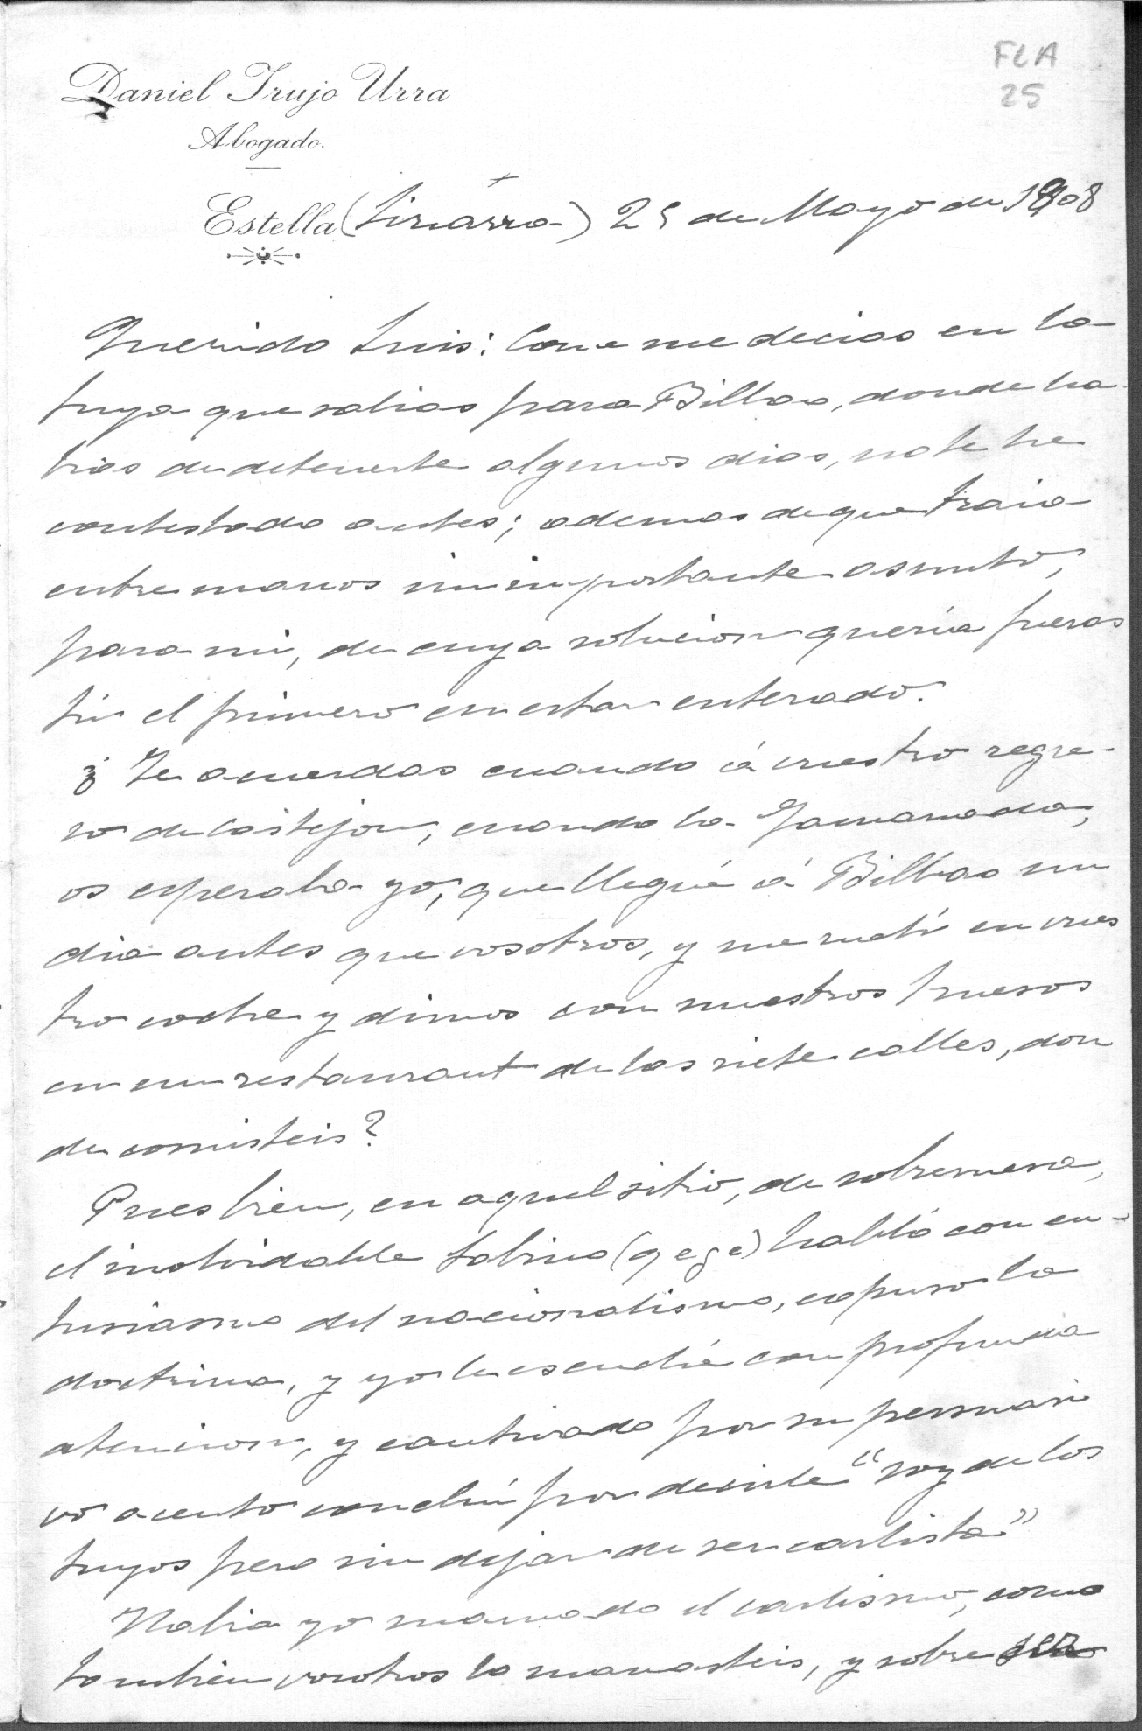 FLA
25
Daniel Irujo Urra
Abogado.
Estella (Lizarra) 25 de Mayo de 1908
Querido Luis: Como me decias en la
tuya que salias para Bilbao, donde ha
brias de detenerte algunos dias, no te he
contestado antes; ademas de que traia
entre manos un importante asunto,
para mi, de cuya solucion quería fueras
tu el primero en estar enterado.
¿Te acuerdas cuando á vuestro regre-
so de Castejon, cuando la Gamazada,
os esperaba yo, que llegué á Bilbao un
dia antes que vosotros, y me metí en vues
tro coche y dimos con nuestros huesos
en un restaurant de las siete calles, don
de comisteis?
Pues bien, en aquel sitio, de sobremesa,
el inolvidable Sabino (q e g e) habló con en-
tusiasmo del nacionalismo, expuso la
doctrina, y yo le escuché con profunda
atencion, y cautivado por su persuasi
vo acento concluí por decirle "soy de los
tuyos pero sin dejar de ser carlista"
Habia yo mamado el carlismo, como
tambien vosotros lo mamasteis, y sobre